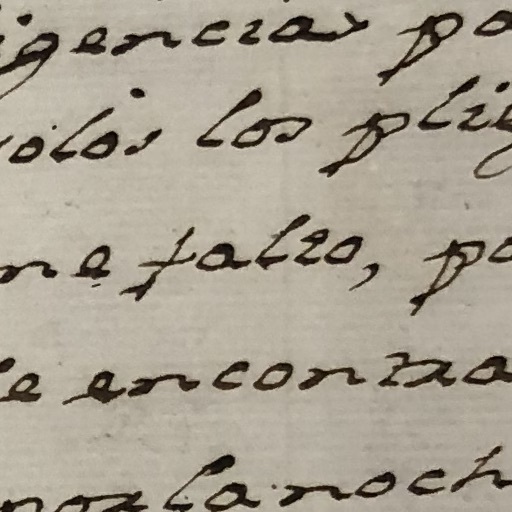 igencias pa
volos los plie
ne falto, po
le encontra
por la noch